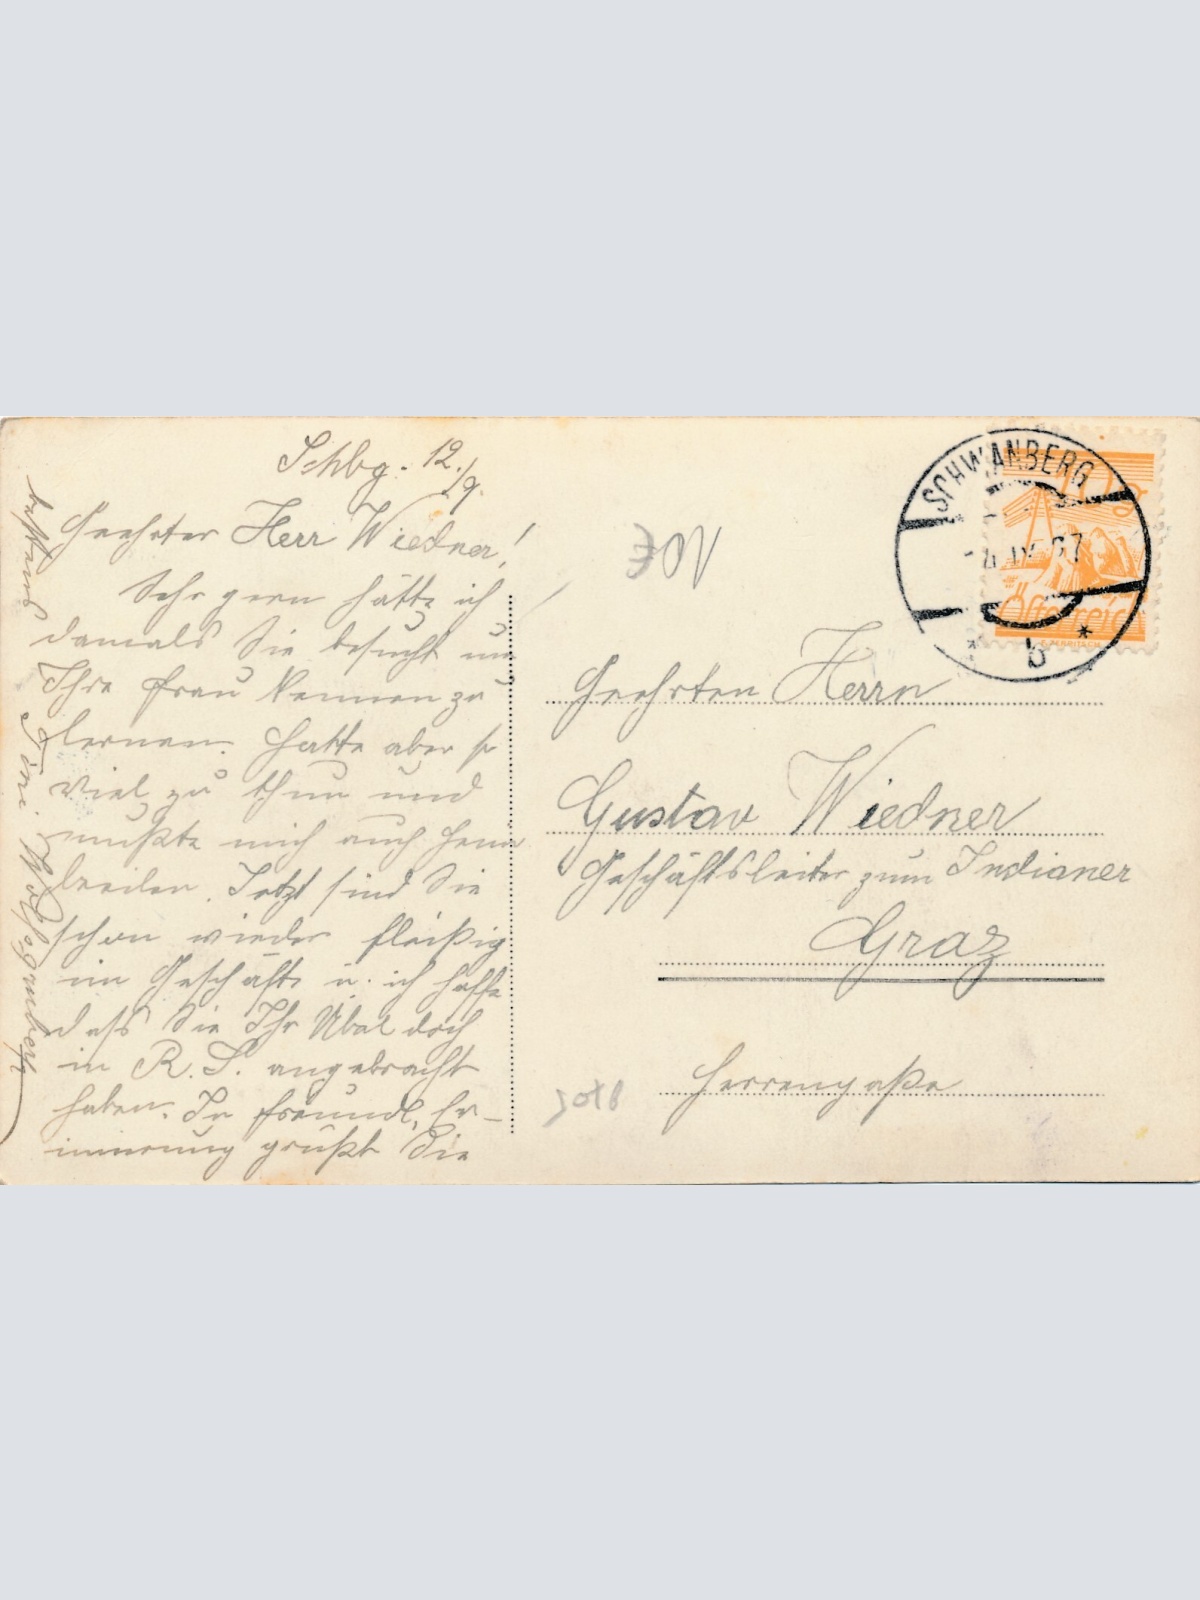 Schbg. 12./9.
Geehrter Herr Wiedner!
Sehr gern hätte ich
damals Sie besucht um
Ihre Frau kennen zu
lernen. Hatte aber so
viel zu thun und
mußte mich auch heim
beeilen. Jetzt sind Sie
schon wieder fleißig
im Geschäft u. ich hoffe
daß Sie Ihr Übel doch
in R. S. angebracht
haben. In freundl. Er-
innerung grüßt Sie
bestens Tini
SCHWANBERG
IX
b
Österreich
Geehrten Herrn
Gustav Wiedner
Geschäftsleiter zum Indianer
Graz
Herrengaße